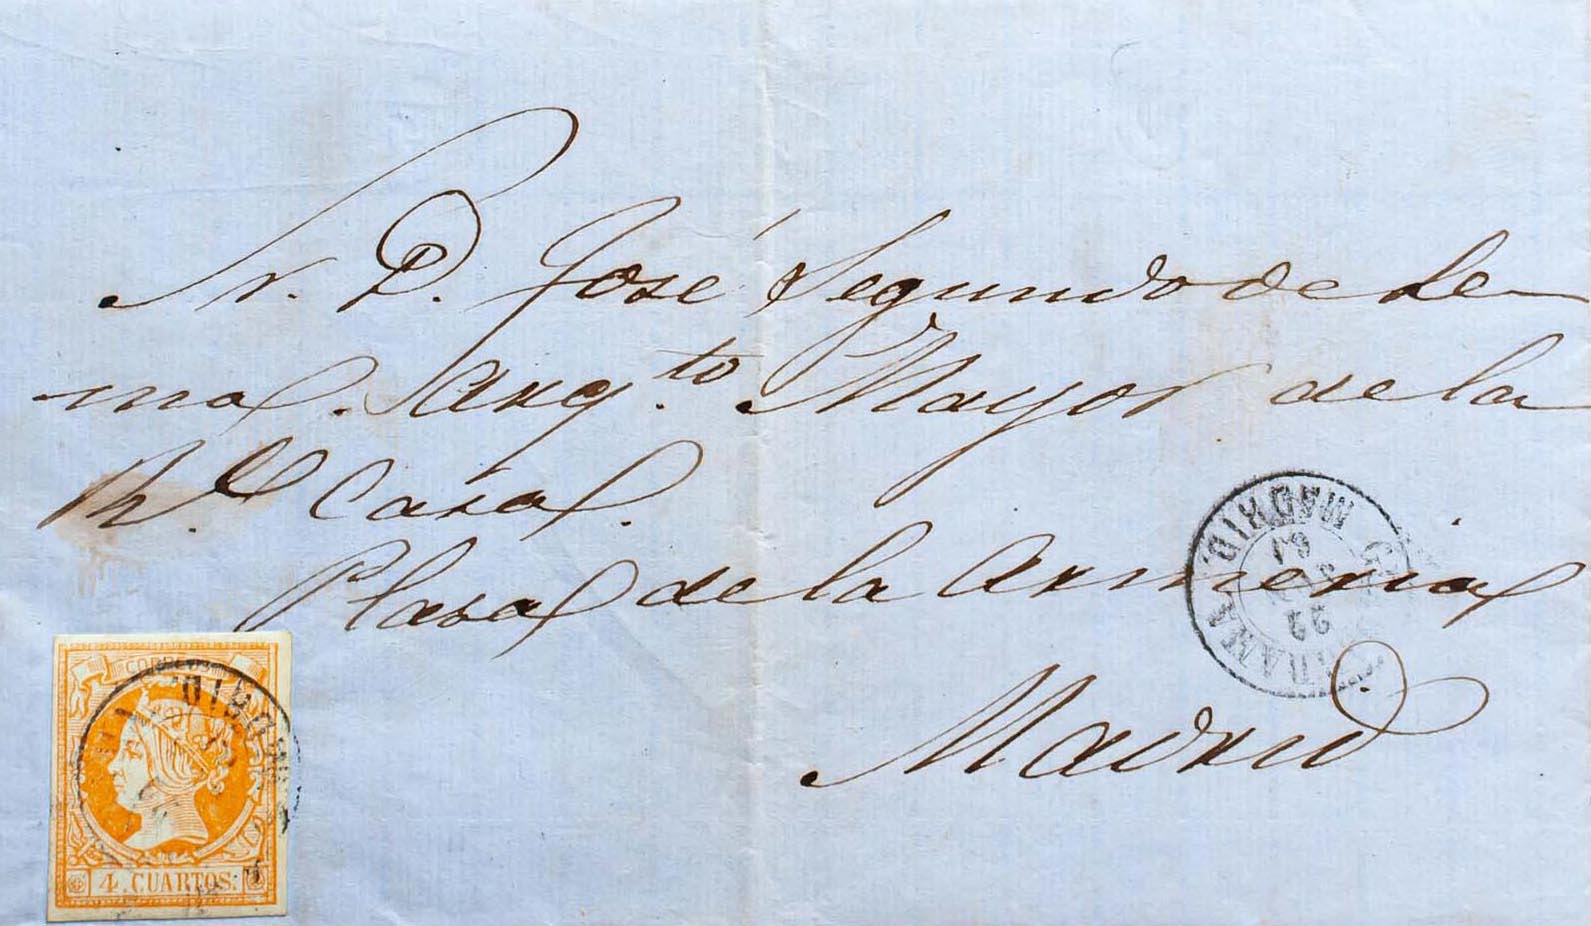 Sr. D. José Segundo de Le-
ma. Arq.to Mayor de la
Rl. Casa.
Plasa de la Armeria
Madrid
MADRID
22
CORREOS
MADRID
4 CUARTOS.